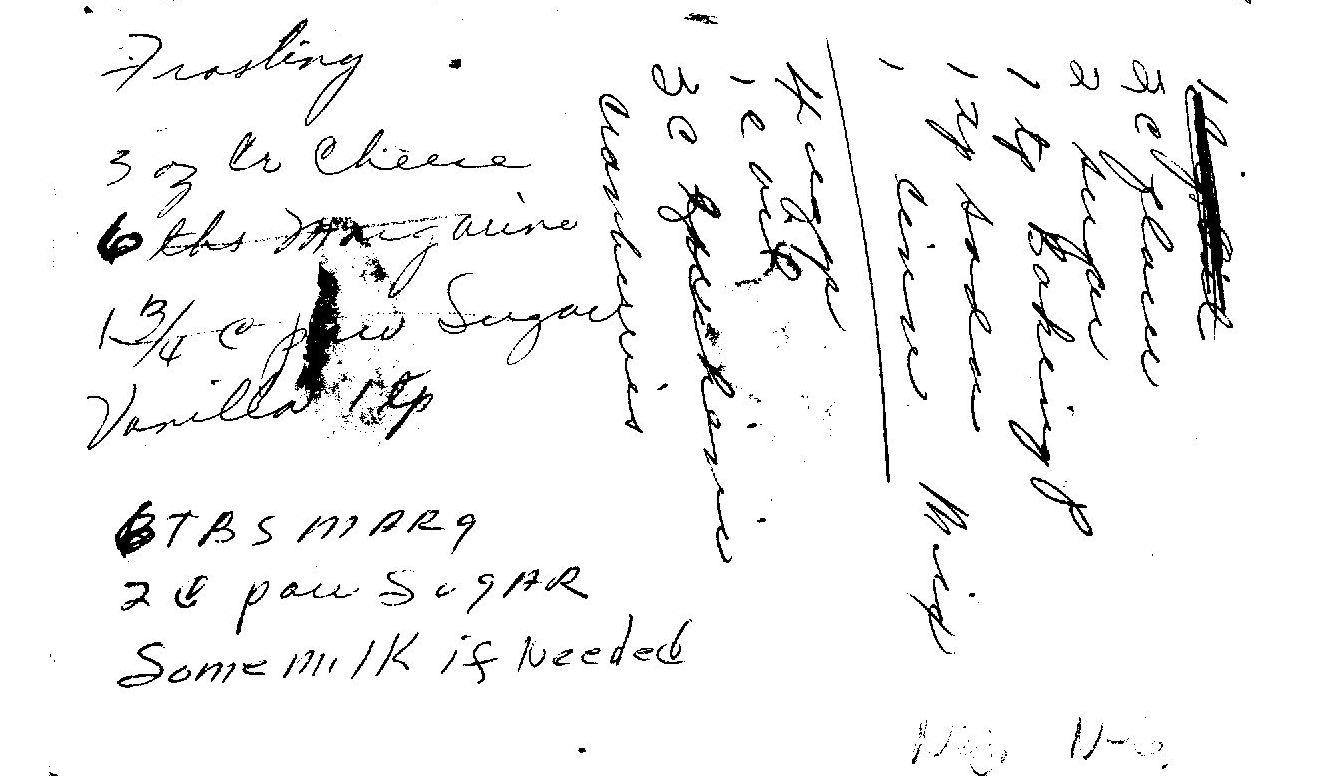 Frosting
3 oz Cr Cheese
6 tbs Margarine
1 3/4 c pow Sugar
Vanilla 1 tsp
6 TBS MARg
2 C pow SugAR
Some Milk if Needed
3 c flour
2 sugar
1 tp Baking P
1 tsp soda
1 cinn Mix
4 eggs
1 c oil
3 c Zucchini
cranberries